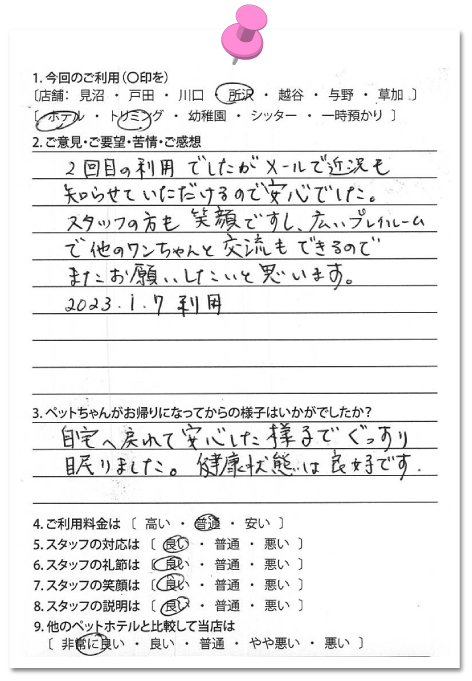 1. 今回のご利用（〇印を）
〔店舗： 見沼 ・ 戸田 ・ 川口 ・ 所沢 ・ 越谷 ・ 与野 ・ 草加 〕
〔 ホテル ・ トリミング ・ 幼稚園 ・ シッター ・ 一時預かり 〕
2. ご意見・ご要望・苦情・ご感想
2回目の利用でしたがメールで近況も
知らせていただけるので安心でした。
スタッフの方も笑顔ですし、広いプレイルーム
で他のワンちゃんと交流もできるので
またお願いしたいと思います。
2023.1.7 利用
3. ペットちゃんがお帰りになってからの様子はいかがでしたか？
自宅へ戻れて安心した様子でぐっすり
眠りました。健康状態は良好です.
4. ご利用料金は 〔 高い ・ 普通 ・ 安い 〕
5. スタッフの対応は 〔 良い ・ 普通 ・ 悪い 〕
6. スタッフの礼節は 〔 良い ・ 普通 ・ 悪い 〕
7. スタッフの笑顔は 〔 良い ・ 普通 ・ 悪い 〕
8. スタッフの説明は 〔 良い ・ 普通 ・ 悪い 〕
9. 他のペットホテルと比較して当店は
〔 非常に良い ・ 良い ・ 普通 ・ やや悪い ・ 悪い 〕